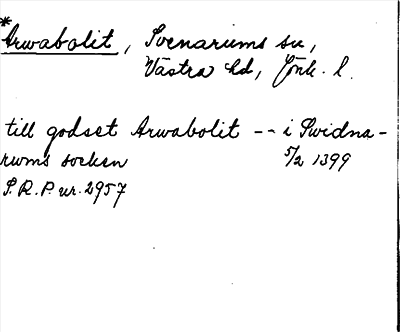 *Arwabolit, Svenarums sn,
Västra hd, Jönk. l.
till godset Arwabolit -- i Swidna-
rums socken 5/2 1399
S.R.P. nr. 2957